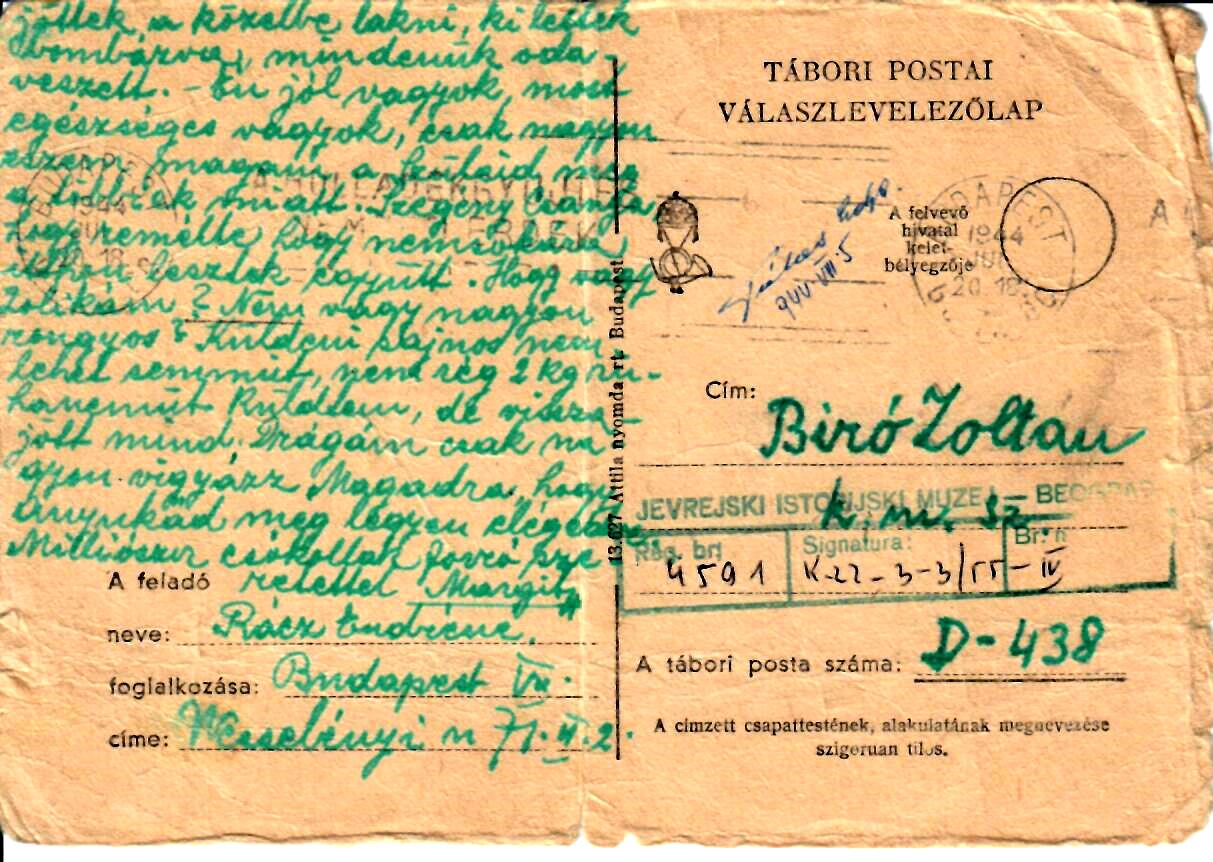 jöttek a közelbe lakni, ki lettek
bombázva, mindenük oda
veszett. - Én jól vagyok, most
egészséges vagyok, csak nagyon
eszem magam a
a miatt. Szegény
hogy remélik hogy nemsokára
itthon lesznek együtt. Hogy vagy
Zolikám? Nem vagy nagyon
rongyos? Küldeni sajnos nem
lehet semmit, nem rég 2 kg ru-
haneműt küldtem, de vissza
jött mind. Drágám csak na
gyon vigyázz Magadra, hogy
anyukád meg légyen elégedve.
Milliószor csókollak forró sze
retettel Margit
A feladó
neve: Rácz Endréné
foglalkozása: Budapest VII.
címe: Wesselényi u 71. II. 2.
13.027 Attila nyomda rt. Budapest
TÁBORI POSTAI
VÁLASZLEVELEZŐLAP
A felvevő
hivatal
kelet-
bélyegzője
BUDAPEST
1944
20 18
944 VIII. 5
Cím:
Biró Zoltán
k. mu. sz
JEVREJSKI ISTORIJSKI MUZEJ — BEOGRAD
Reg. br: 4591
Signatura: K-22-3-3/55-IV
A tábori posta száma: D-438
A címzett csapattestének, alakulatának megnevezése
szigoruan tilos.